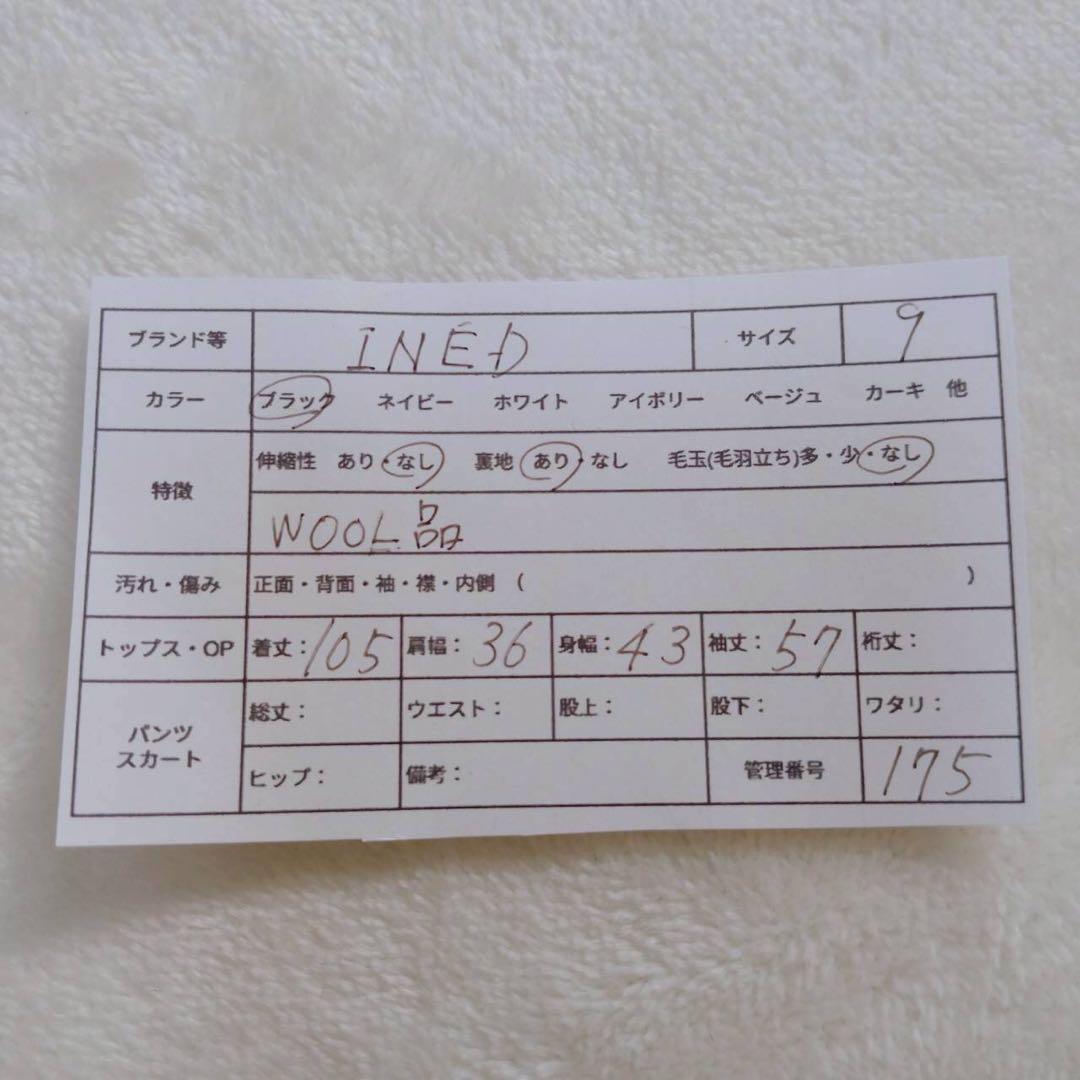 ブランド等 INED サイズ 9
カラー ブラック ネイビー ホワイト アイボリー ベージュ カーキ 他
特徴 伸縮性 あり・なし 裏地 あり・なし 毛玉(毛羽立ち)多・少・なし
WOOL品
汚れ・傷み 正面・背面・袖・襟・内側 ( )
トップス・OP 着丈：105 肩幅：36 身幅：43 袖丈：57 裄丈：
パンツ スカート
総丈： ウエスト： 股上： 股下： ワタリ：
ヒップ： 備考： 管理番号 175